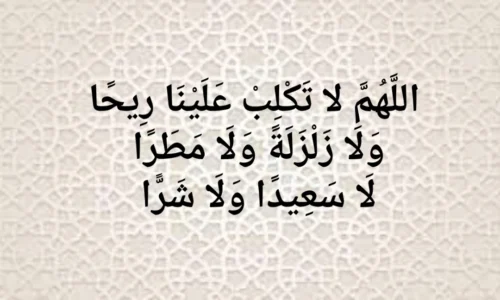 اللَّهُمَّ لا تَكْلِبْ عَلَيْنَا رِيحًا
وَلَا زَلْزَلَةً وَلَا مَطَرًا
لَا سَعِيدًا وَلَا شَرًّا